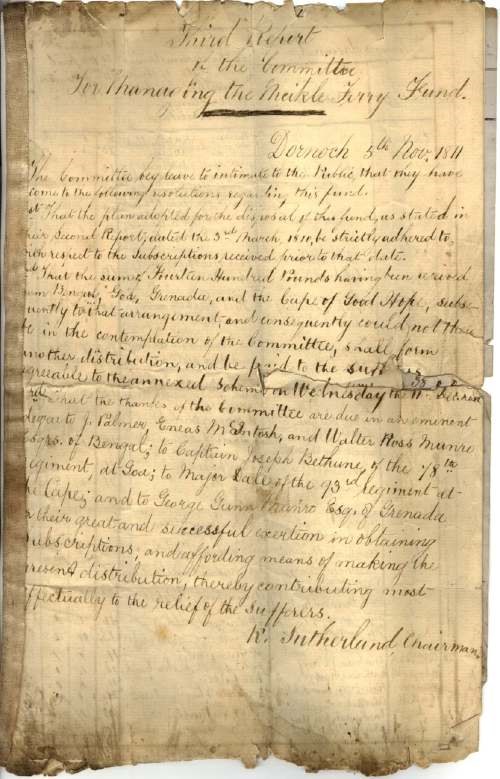 Third Report
of the Committee
For Managing the Meikle Ferry Fund.
Dornoch 5th Nov. 1811
The Committee beg leave to intimate to the Public, that they have
come to the following resolutions regarding this fund.
st That the plan adopted for the disposal of this fund, as stated in
their Second Report, dated the 3rd March, 1810, be strictly adhered to,
with respect to the Subscriptions received prior to that date.
That the sum of Thirteen Hundred Pounds having been received
from Bengal, Goa, Grenada, and the Cape of Good Hope, subse
quently to that arrangement, and consequently could not then
be in the contemplation of the Committee, shall form
another distribution, and be paid to the
agreeable to the annexed Scheme on Wednesday the 11th December
3rd That the thanks of the Committee are due in an eminent
degree to J. Palmer, Eneas McIntosh, and Walter Ross Munro
Esqrs. of Bengal; to Captain Joseph Bethune, of the 78th
regiment, at Goa; to Major Dale of the 93rd regiment at
the Cape; and to George Gunn Munro Esq. of Grenada
for their great and successful exertion in obtaining
subscriptions, and affording means of making the
present distribution, thereby contributing most
effectually to the relief of the Sufferers.
R. Sutherland, Chairman.